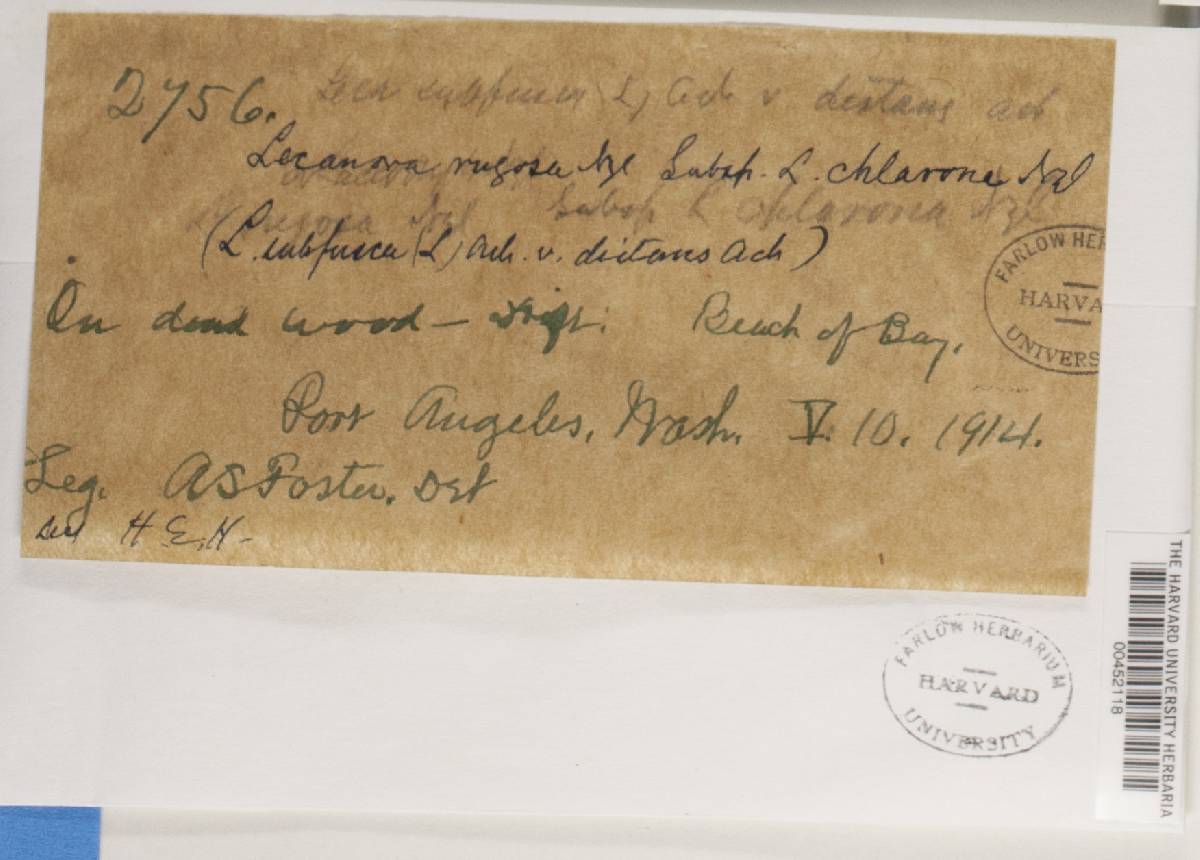 2756. Lecn subfusca (L) Ach v. distans ach
Lecanora rugosa Nyl Subsp. L. chlarona Nyl
rugosa Nyl Subsp L chlarona Nyl
(L. subfusca (L) Ach. v. distans Ach)
On dead wood – Drift. Beach of Bay,
Port Angeles, Wash. V. 10. 1914.
Leg. A S Foster. Det
H. E. H-
FARLOW HER
HARVA
UNIVERS
FARLOW HERBARIUM
HARVARD
UNIVERSITY
THE HARVARD UNIVERSITY HERBARIA
00452118